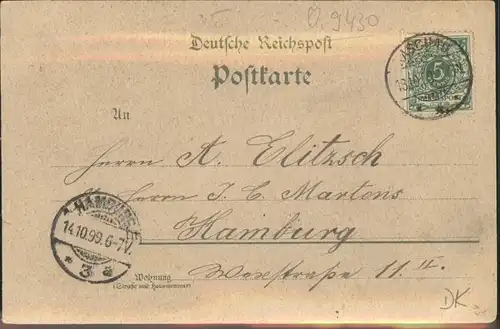 O. 9430
Deutsche Reichspost
Postkarte
An
Herrn A. Elitzsch
Herrn J. C. Martens
Hamburg
Wexstraße 11. II.
Wohnung
(Straße und Hausnummer)
5
HAMBURG
14.10.99.6-7V.
* 3 a
DK